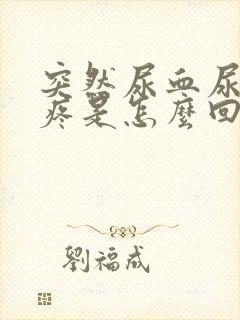 突然尿血尿
疼是怎麼回
劉福成